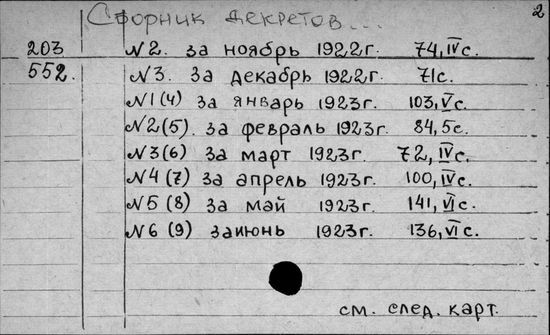 Сборник декретов... 2
203 N2. за ноябрь 1922г. 74, IV с.
552. N3. за декабрь 1922г. 71с.
N1(4) за январь 1923г. 103, V с.
N2(5). за февраль 1923г. 84, 5с.
N3(6) за март 1923г. 72, IV с.
N4(7) за апрель 1923г. 100, IV с.
N5(8) за май 1923г. 141, VI с.
N6(9) за июнь 1923г. 136, VI с.
см. след. карт.